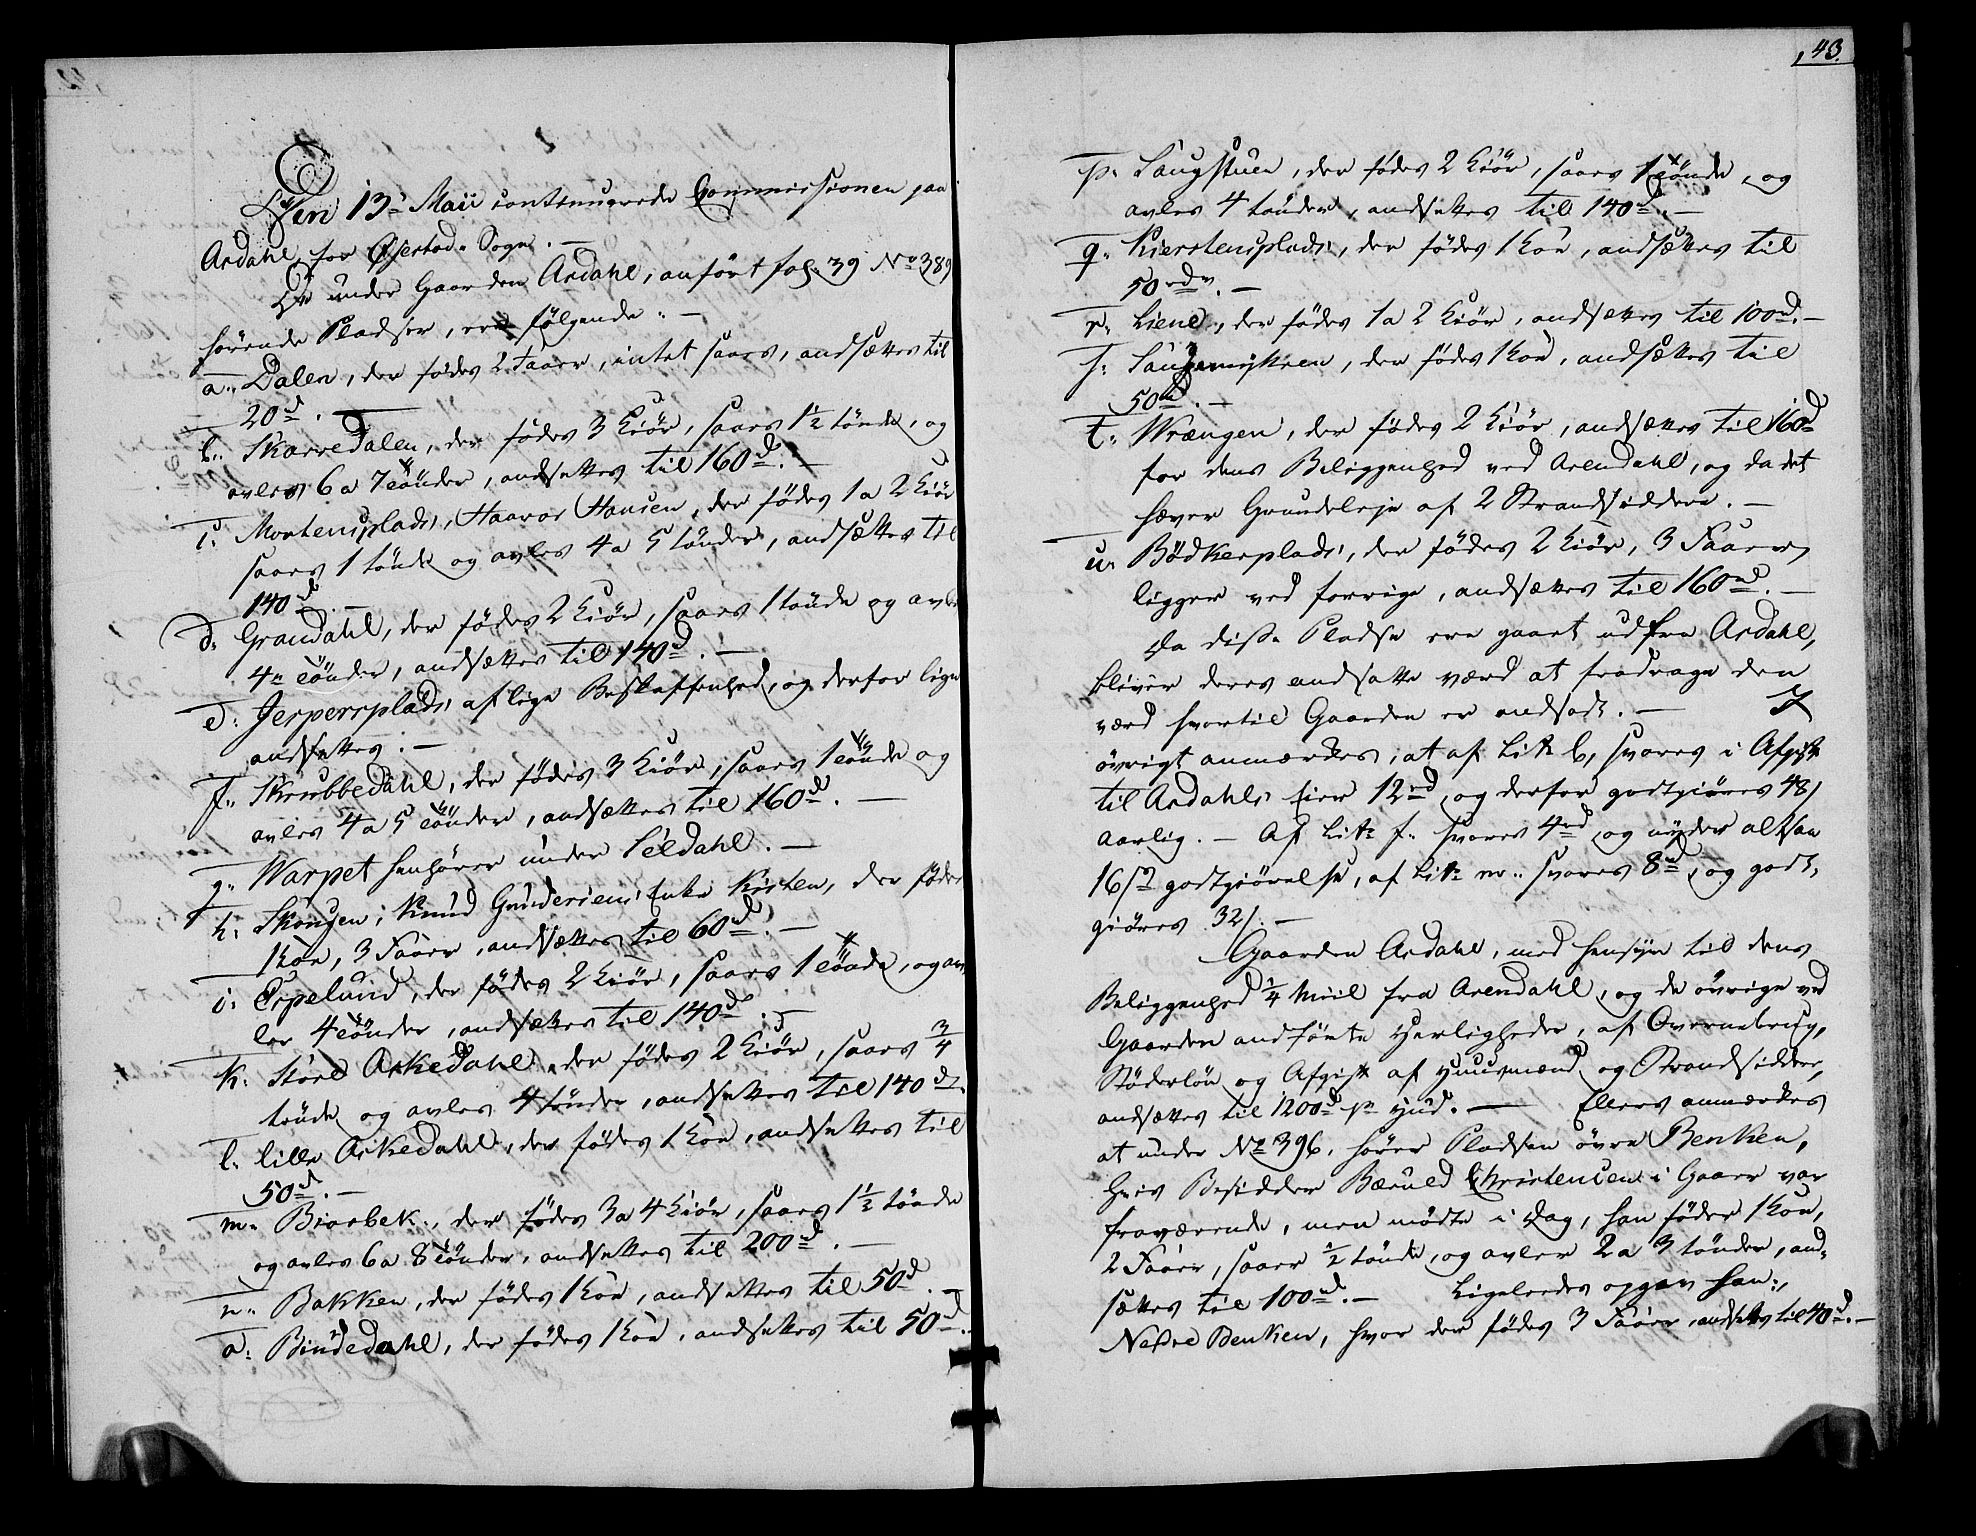 Den 13de Maii continuerede Commissionen paa
Ardahl for Øiestad Sogn. —
De under Gaarden Ardahl, anført fol. 39 No 389
hørende Pladser, ere følgende: —
a. Dalen, der fødes 2 Faarr, intet saaes, andsættes til
20 rd. —
b. Skarredalen, der fødes 3 Kiör, saaes 1½ tönde, og
avles 6 a 7 tönder, andsættes til 160 rd. —
c. Mortensplads, Haavor Hansen, der födes 1 a 2 Kiör
saaes 1 tönde og avles 4 a 5 tönder, andsættes til
140 rd. —
d. Grandahl, der födes 2 Kiör, saaes 1 tönde og avles
4re tönder, andsættes til 140 rd. —
e. Jesperrplads af lige Beskaffenhed, og derfor lige
andsættes. —
f. Skrubbedahl, der födes 3 Kiör, saaes 1 tönde og
avles 4 a 5 tönder, andsættes til 160 rd. —
g. Warpet henhörer under Séldahl. —
h. Skougen; Knud Gundersens Enke Kirsten, der föder
1 Koe, 3 Faarr, andsættes til 60 rd. —
i. Espelund, der födes 2 Kiör, saaes 1 tönde, og av-
les 4 tönder, andsættes til 140 rd. —
k. Store Askedahl, der födes 2 Kiör, saaes ¾
tönde og avles 4 tönder, andsættes til 140 rd.
l. lille Askedahl, der födes 1 Koe, andsættes til
50 rd. —
m. Biorbek, der födes 3 a 4 Kiör, saaes 1½ tönde
og avles 6 a 8 tönder, andsættes til 200 rd. —
n. Bakken, der födes 1 Koe, andsættes til 50 rd. —
o. Bindedahl, der födes 1 Koe, andsættes til 50 rd. —
43.
p. Saugstuen, der födes 2 Kiör, saaes 1 tönde, og
avles 4 tönder, andsættes til 140 rd. —
q. Kierstensplads, der födes 1 Koe, andsættes til
50 rdr. —
r. Liene, der födes 1 a 2 Kiör, andsættes til 100 rd. —
s. Saugemyhren, der födes 1 Koe, andsættes til
50 rd. —
t. Wrængen, der födes 2 Kiör, andsættes til 160 rd
for dens Beliggenhed ved Arendahl, og da det
hæver Grundeleje af 2 Strandsiddere. —
u. Bödkerplads, der födes 2 Kiör, 3 Faarr,
ligger ved forrige, andsættes til 160 rd. —
Da disse Pladse ere gaaet ud fra Ardahl,
bliver deres andsatte værd at fradrage den
værd hvortil Gaarden er andsadt. — I
övrigt anmærkes, at af Litr b, svares i Afgift
til Ardahls Eier 12 rd, og derfor godtgiöres 48 s
aarlig. — Af Litr f. svares 4 rd, og nyder altsaa
16 s godtgiörelse, af Litr m. svares 8 rd, og godt,
giöres 32 s. —
Gaarden Ardahl, med hensyn til dens
Beliggenhed ¼ Miil fra Arendahl, og de övrige ved
Gaarden andförte Herligheder, af Qvernebrug,
Stöderlön og Afgift af Huusmænd og Strandsidder,
andsættes til 1200 rd pr Hud. — Ellers anmærkes
at under No 396. hörer Pladsen övre Benken,
hvis Besidder Bæruld Christensen i Gaarr var
fraværende, men mödte i Dag, han föder 1 Koe,
2 Faarr, saaer ½ tönde, og avler 2 a 3 tönder, and-
sættes til 100 rd. — Ligeledes opgav han,
Nedre Benken, hvor der födes 3 Faarr, andsættes til 40 rd. —